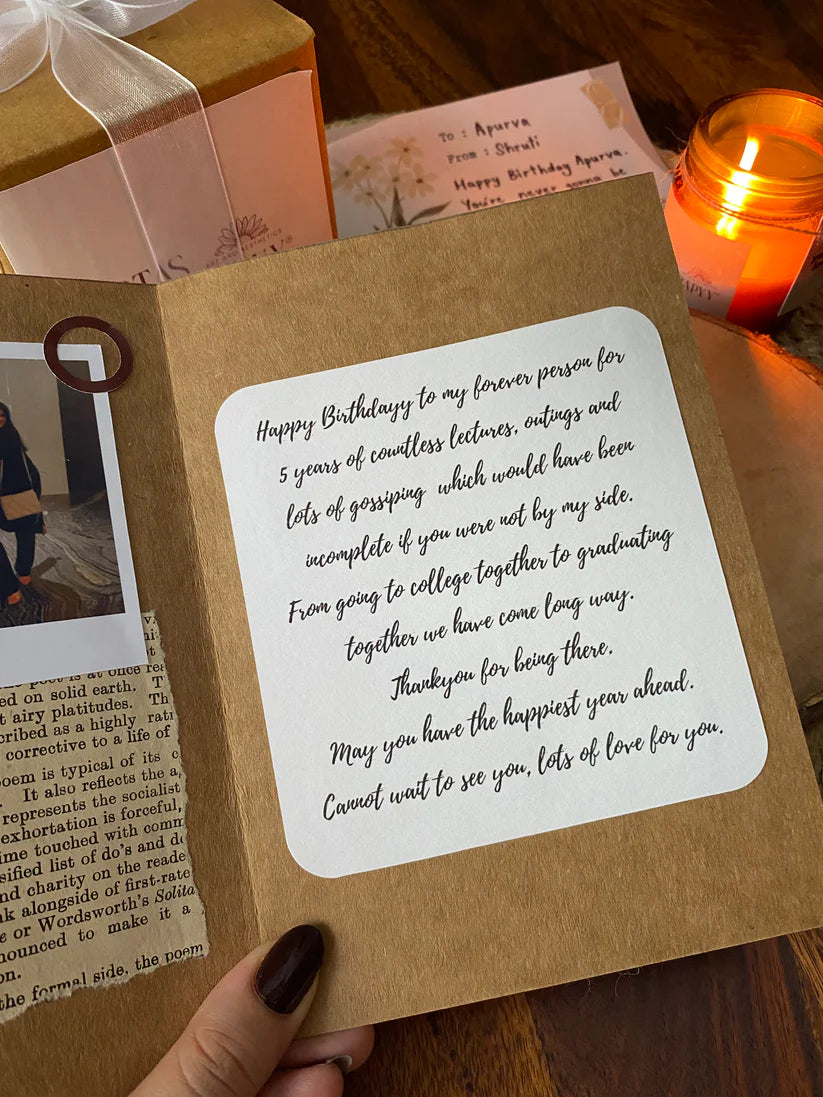 To : Apurva
From : Shruti
Happy Birthday Apurva.
You're never gonna be
ART AND AESTHETICS
Happy Birthdayy to my forever person for
5 years of countless lectures, outings and
lots of gossiping which would have been
incomplete if you were not by my side.
From going to college together to graduating
together we have come long way.
Thankyou for being there.
May you have the happiest year ahead.
Cannot wait to see you, lots of love for you.
poet is at once
on solid earth. T
airy platitudes. Th
as a highly
corrective to a life of
is typical of its
It also reflects the
represents the socialist
exhortation is forceful,
touched with
list of do's and
charity on the
alongside of first-rate
or Wordsworth's
to make it a
the formal side, the poem